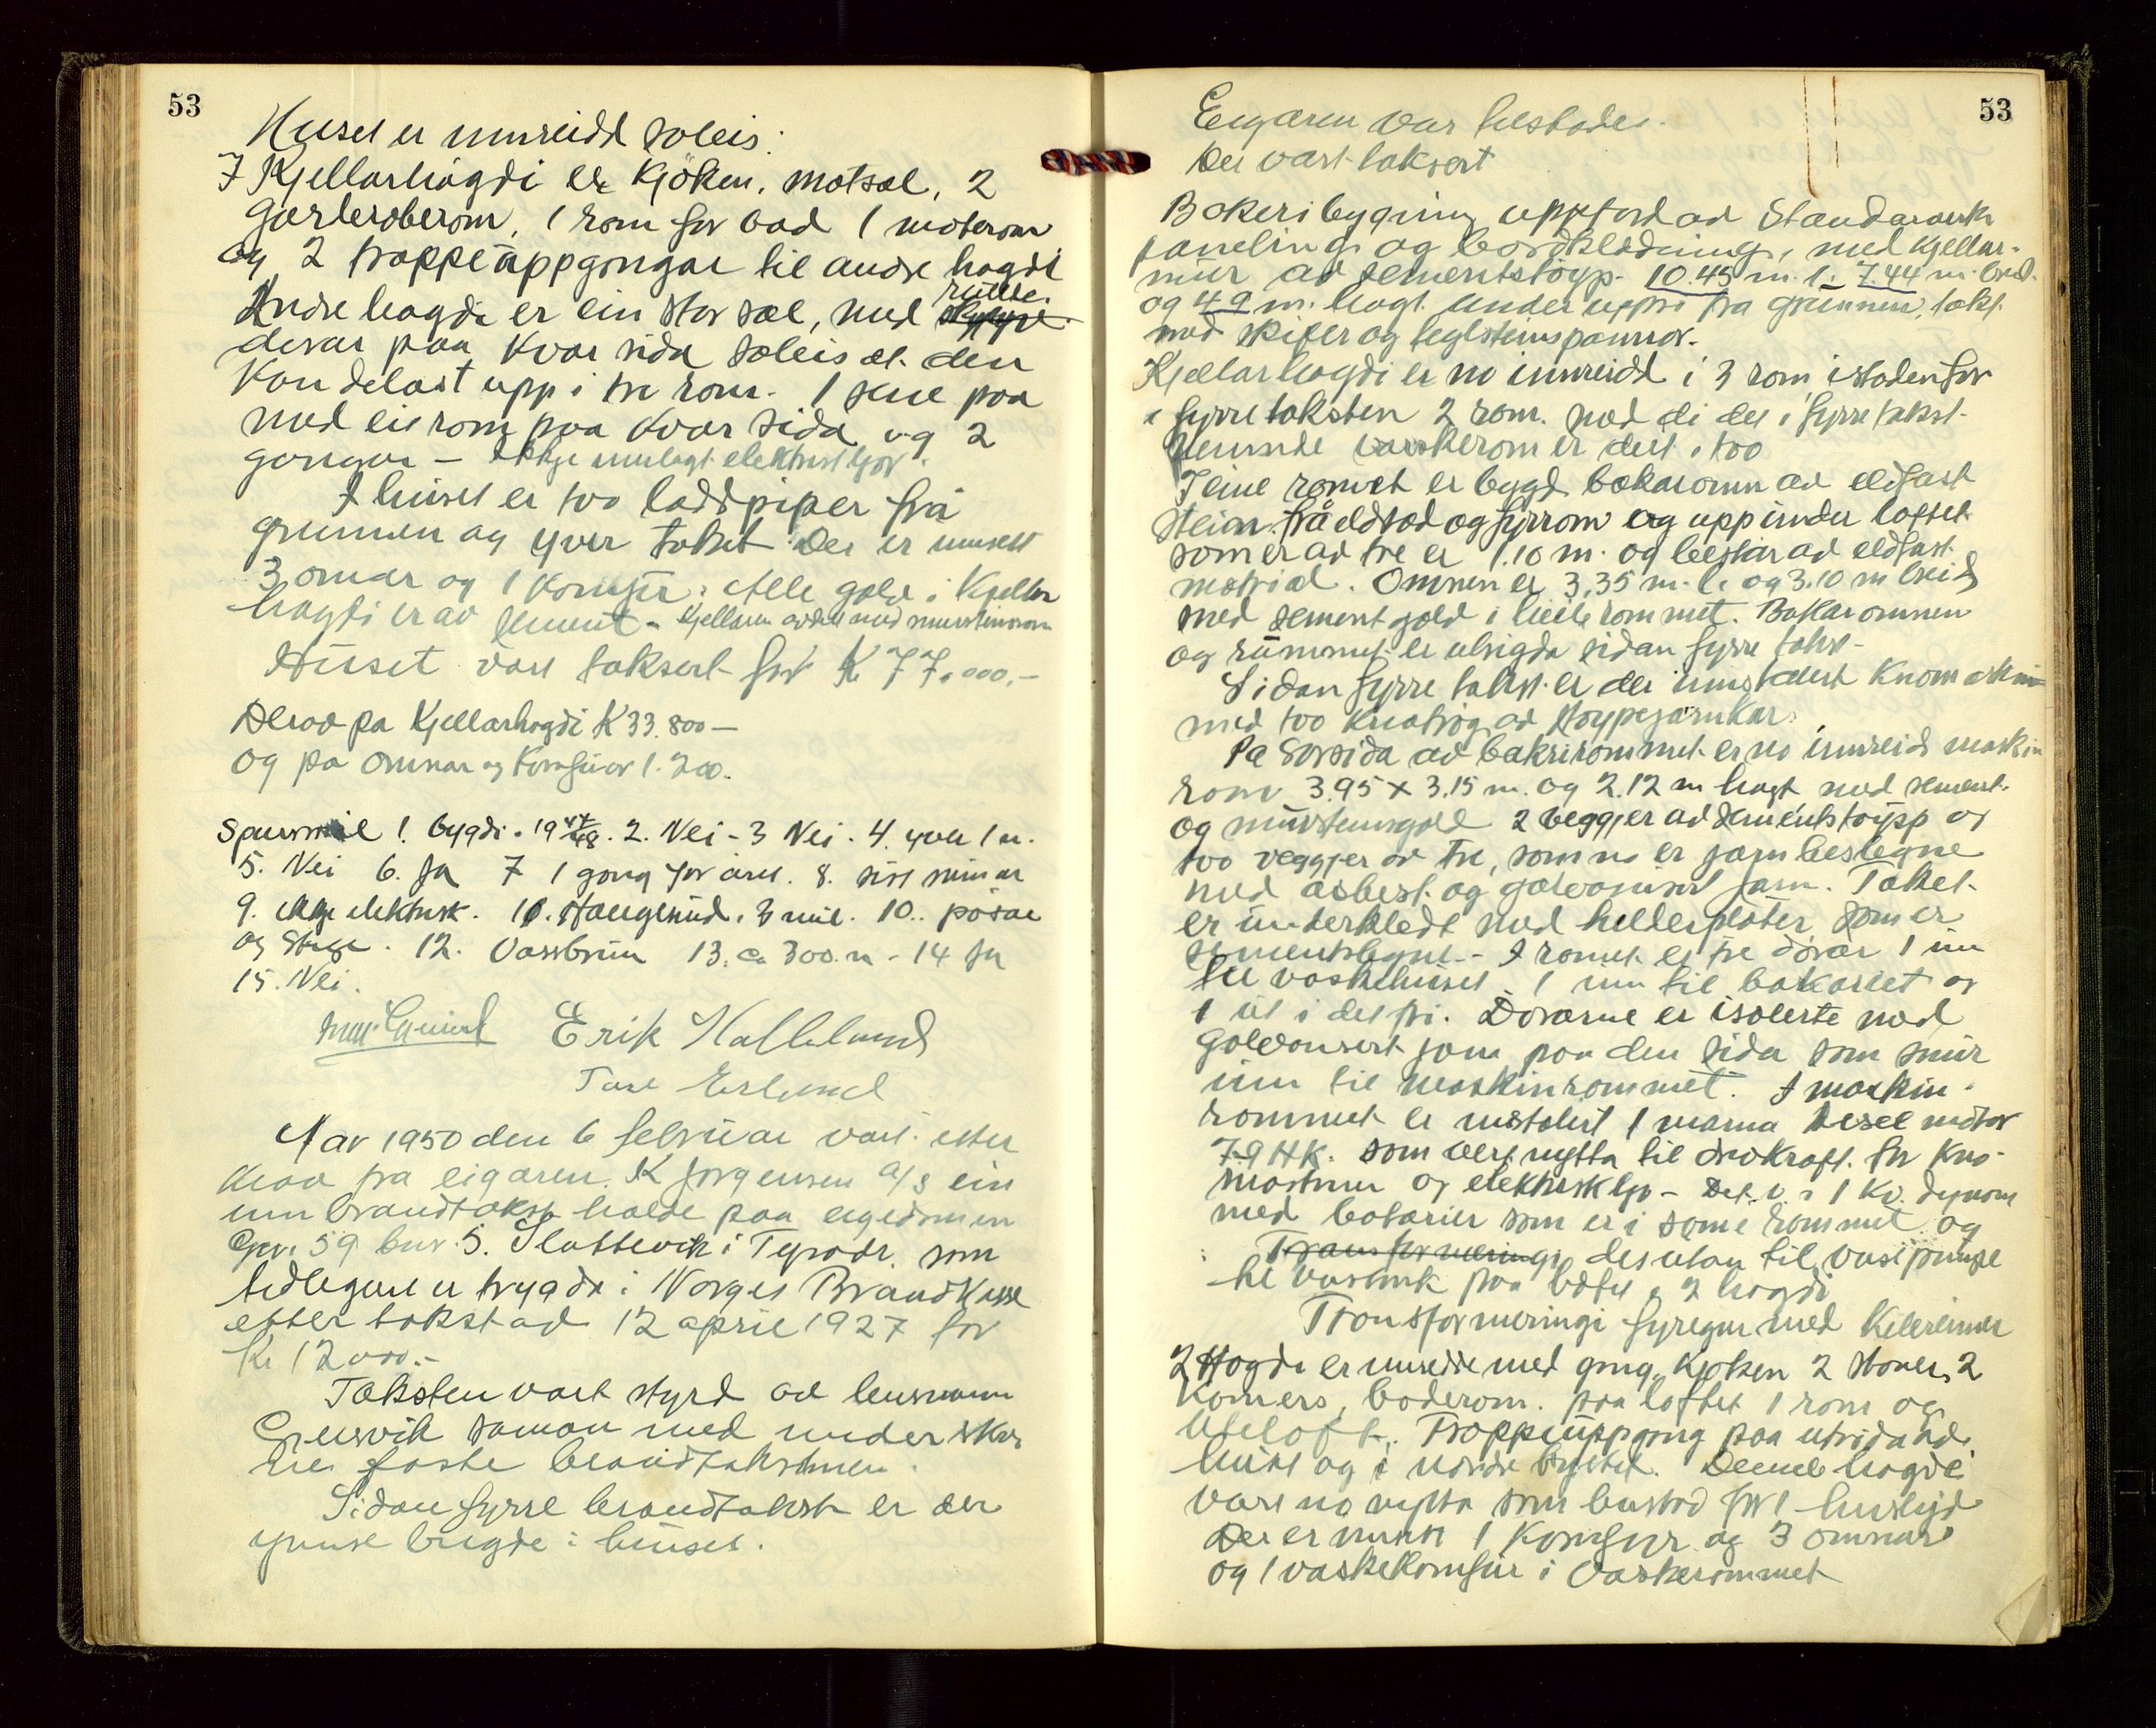 53
Huset er innreidd soleis:
I Kjellarhögdi er Kjöken, matsal, 2
garderoberom, 1 rom for bad 1 moterom
og 2 trappeuppgongar til andre høgdi
Andre høgdi er ein stor sal, med rulle
dørar paa kvar sida soleis at den
kan delast upp i tre rom. 1 sene paa
med eit rom paa kvar sida og 2
gongar — Ikkje innlagt elektrisk ljos.
I huset er too laddpiper frå
grunnen og yver taket. Der er innsett
3 omnar og 1 Komfyr. Alle golv i Kjellar
høgdi er av sement - Kjellaren avdelt med murstein
Huset vart taksert for Kr 77.000.-
Derav pa Kjellarhøgdi K 33.800 —
og pa omnar og Komfur 1.200.
Spursmål 1. bygdi. 1947/48. 2. Nei - 3 Nei. 4. yver 1 m.
5. Nei 6. Ja 7 1 gong for året. 8. siste sinn
9. ikkje elektrisk. 10. Haugesund. 3 mil. 10.. pøsar
og Stige. 12. Vassbrun 13. ca 300. m - 14 Ja
15. Nei.
Erik Hallelund
Tore Erlund
Aar 1950 den 6 februar vart etter
krav fra eigaren K Jørgensen a/s ein
ny brandtakst halde paa eigedomen
Gnr. 59 bnr. 5. Slattevik i Tysvær. som
tidlegare er trygda i Norges Brandkasse
etter takst ad 12 april 1927 for
Kr 12000.-
Taksten vart styrd av lensmann
Grunsvik saman med underskriv
ne faste brandtakstmen.
Sidan fyrre brandtakst er der
ymse brigde i huset.
53
Eigaren var tilstades.
Der vart taksert
Bakeribygning uppford av Standarverk
paneling og bordklædning, med kjellar-
mur av sementstøyp. 10.45 m. l. 7.44 m. breid.
og 4.9 m. høgt. under uppsi fra grunnen, takt.
med skifer og teglsteinspannor.
Kjellarhøgdi er no innreidd i 3 rom, istadenfor
i fyrre taksten 2 rom. med di det i fyrre takst
nemnde vaskerom er delt i too
I eine romet er bygd bakaromn av eldfast
stein. frå eldstad og fyrrom og upp under loftet
som er av tre er 1.10 m. og består av eldfast
matrial. Omnen er 3.35 m. l. og 3.10 m breid
med sement gold i heile rommet. Bakaromnen
og rummet er utvigda sidan fyrre takst -
Sidan fyrre takst er der innstalert Knomaskin
med too knatrog av støypejarnkar.
Pa Sørsida av bakrirommet er no innreidd maskin
rom 3.95 x 3.15 m. og 2.12 m høgt med sement.
og mursteinsgolv 2 veggjer av sementstøypp og
too veggjer av tre, som no er jarn beslegne
med asbest og galvanisert jarn. Taket
er underkledt med hellerplater som er
sementslegne - I romet er tre dörar 1 inn
til vaskehuset 1 inn til bakariet og
1 ut i det fri. Dorarne er isolerte med
galvanisert jarn paa den sida som snur
inn til maskinrommet. I maskin-
rommet er instalert 1 marna Disel motor
7-9 HK. som vert nytta til drivkraft for Kna-
maskinen og elektrisk ljos - Det er i 1 Kv. dynamo
med batarier som er i same rommet og
Transformeringi desutan til vasspumpe
til vasstank paa loftet i 2 høgdi
Transformeringi fyregår med Kileremer
2 Høgdi er innreidde med gong, Kjøken 2 stover, 2
Komers, baderom. paa loftet 1 rom og
uteloft. Trappeuppgong paa utsida av
huset og i nordre bislet. Denne høgdi
vart no nytta som bustad for 1 huslyd
Der er innsett 1 Komfur og 3 omnar
og 1 vaskekomfur i Vaskerommet